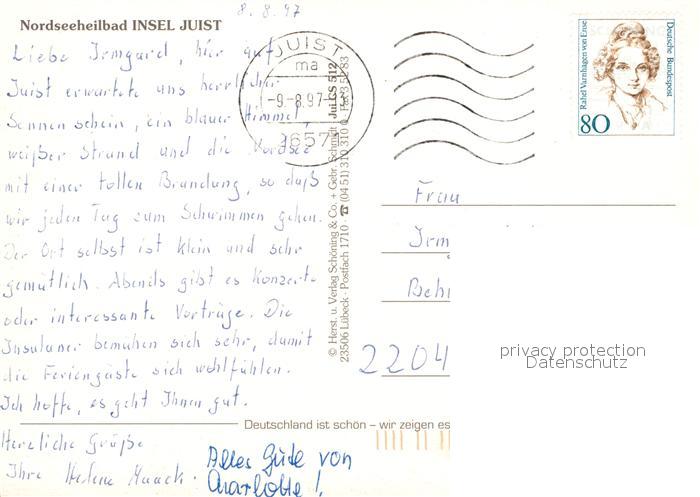 8.8.97
Nordseeheilbad INSEL JUIST
Liebe Irmgard, hier auf
Juist erwartete uns herrlicher
Sonnenschein, ein blauer Himmel,
weißer Strand und die Nordsee
mit einer tollen Brandung, so daß
wir jeden Tag zum Schwimmen gehen.
Der Ort selbst ist klein und sehr
gemütlich. Abends gibt es Konzerte
oder interessante Vorträge. Die
Insulaner bemühen sich sehr, damit
die Feriengäste sich wohlfühlen.
Ich hoffe, es geht Ihnen gut.
Herzliche Grüße
Ihre Helene Maack.
Alles Gute von
Charlotte!
JUIST
ma
-9.-8.97-
2657
© Herst. u. Verlag Schöning & Co. + Gebr. Schmidt Jui GS 512
23506 Lübeck · Postfach 1710 · ☎ (04 51) 310 310
Deutschland ist schön – wir zeigen es
Rahel Varnhagen von Ense
Deutsche Bundespost
80
Frau
Irm
Behr
2204
privacy protection
Datenschutz